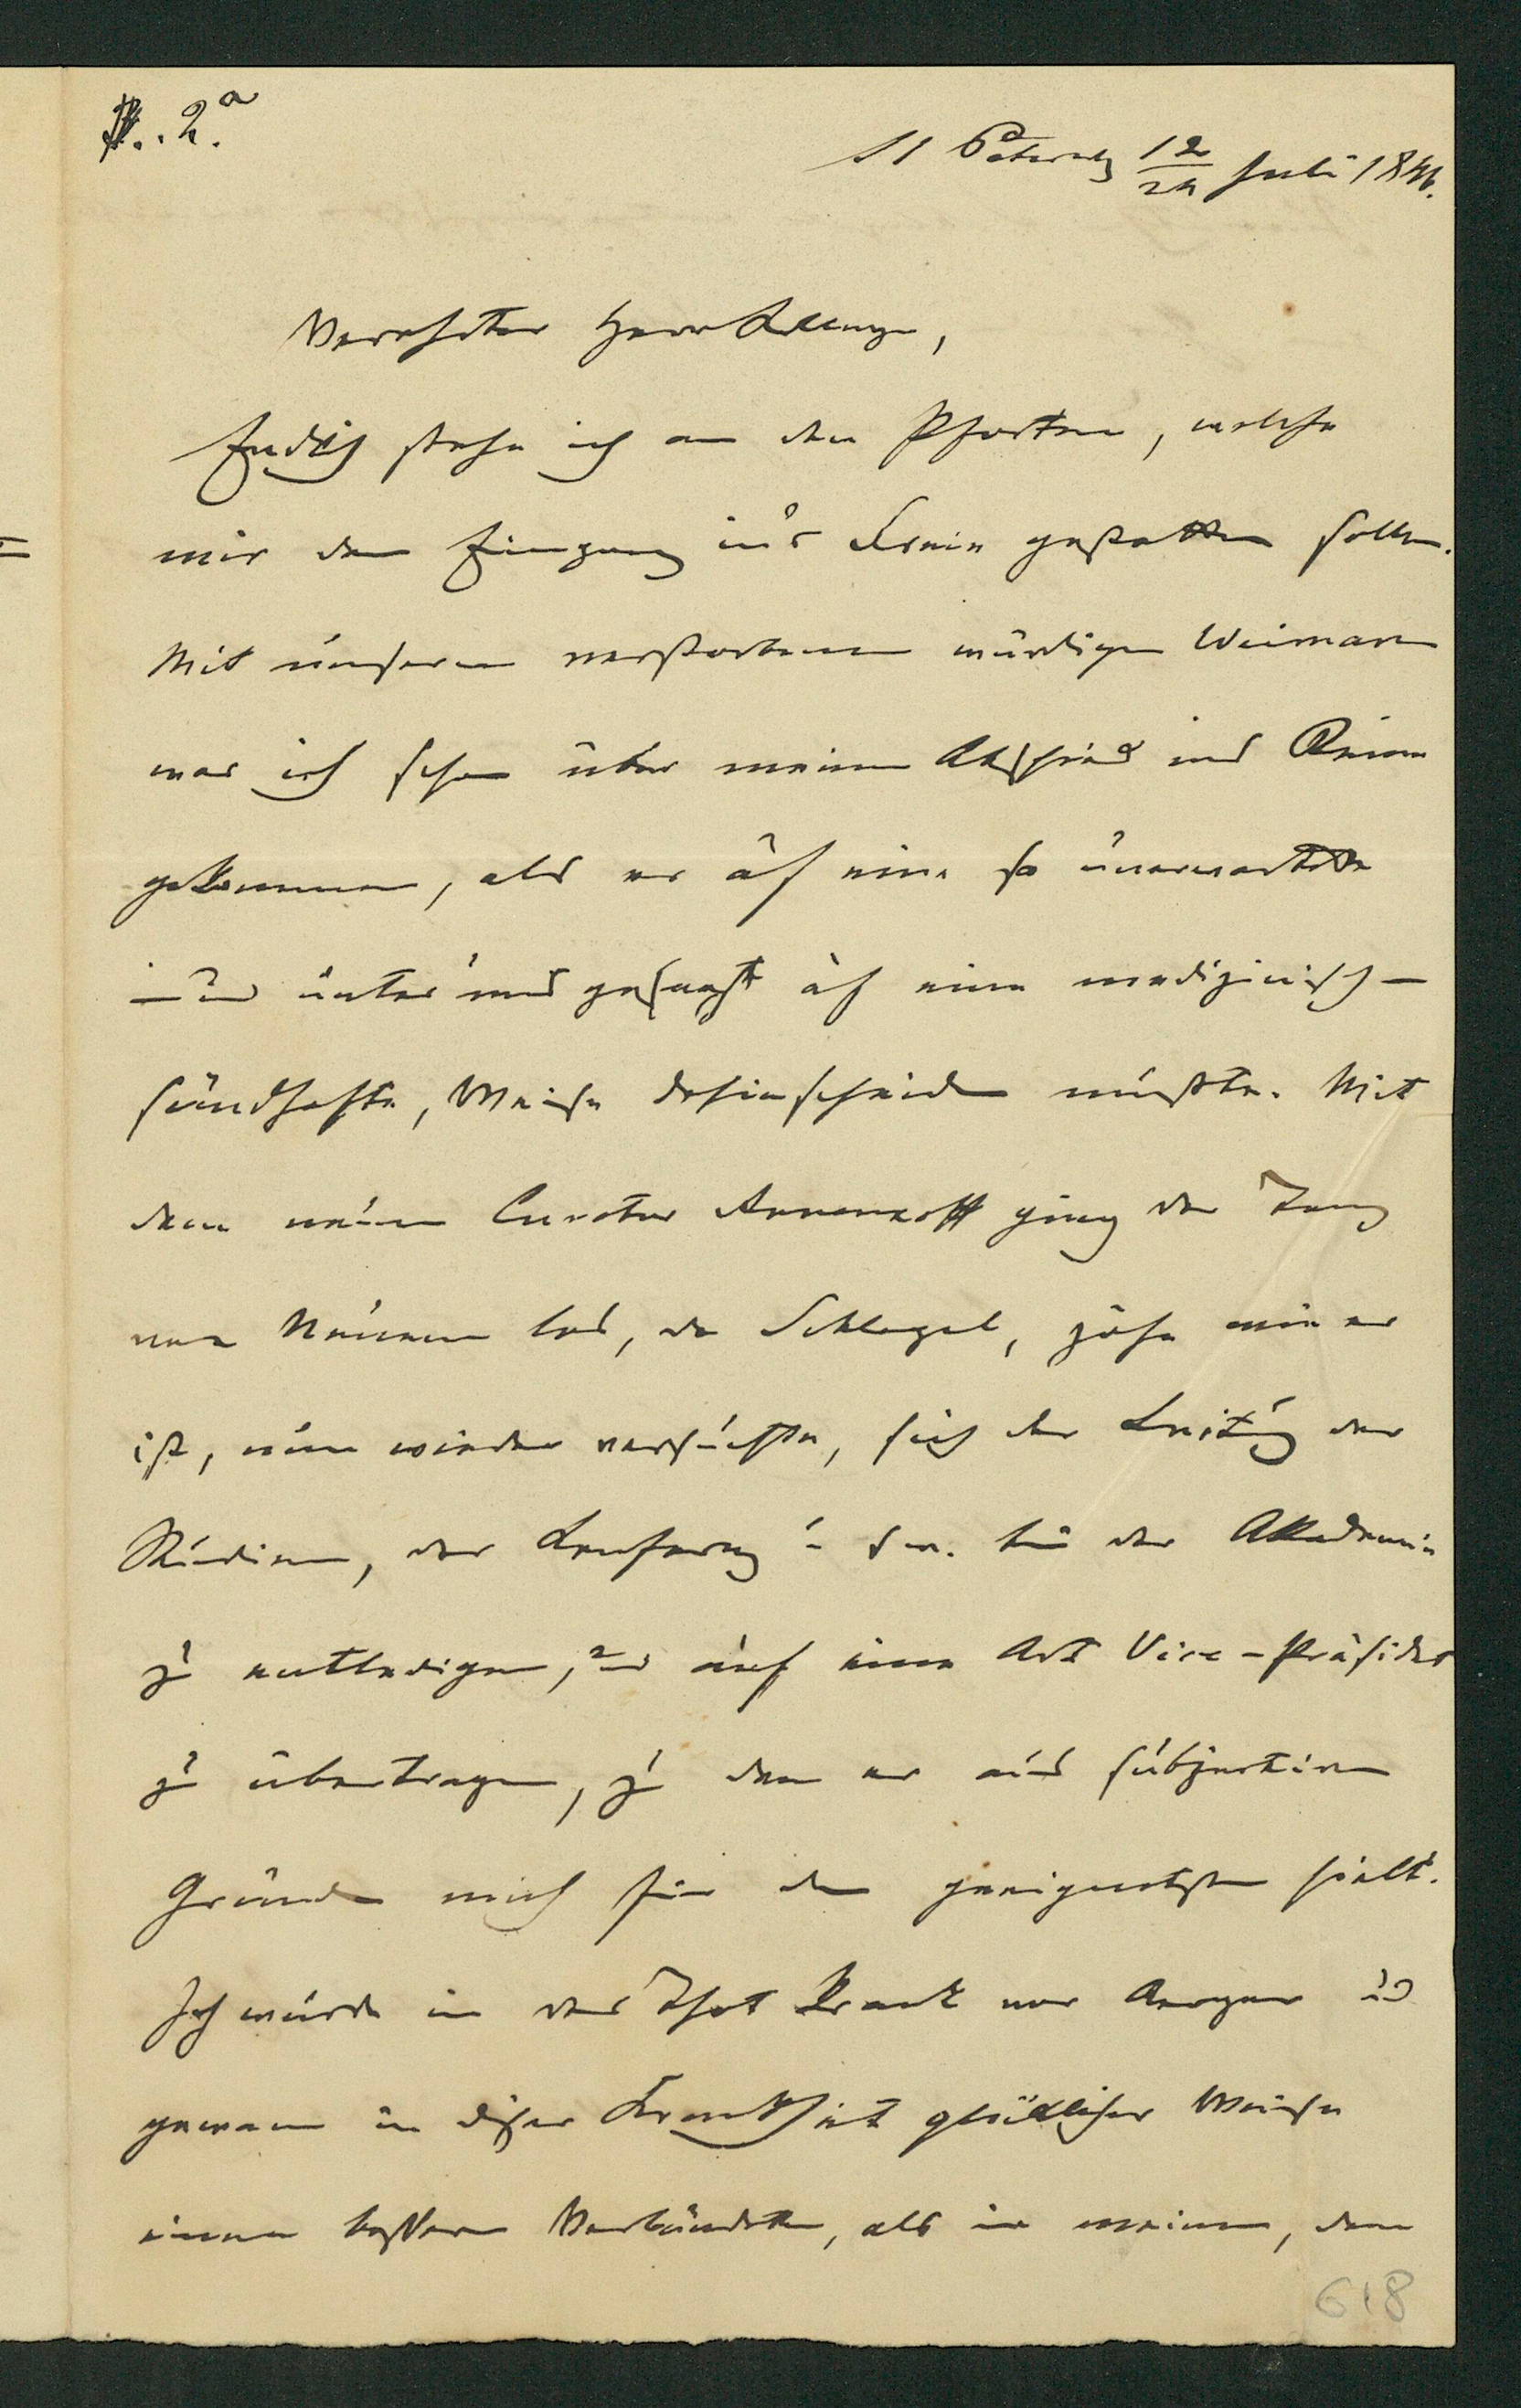 2.a
St Petersbg 12/24 Juli 1846.
Verehrter Herr College,
Endlich stehe ich an den Pforten, welche
mir den Eingang in's Freie gestatten sollen.
Mit unserem verstorbenen würdigen Weimarn
war ich schon über meinen Abschied ins Reine
gekommen, als er auf eine so unerwartete
und unter uns gesagt auf eine medizinisch-
sündhafte, Weise dahinscheiden musste. Mit
dem neuen Curator Annenkoff ging der Tanz
von Neuem los, da Schlegel, zähe wie er
ist, nun wieder versuchte, sich der Leitung der
Studien, der Conferenz u. s. w. bei der Akademie
zu entledigen, und auf eine Art Vice-Präsides
zu übertragen, zu dem er aus subjectiven
Gründen mich für den geeignetsten hielt.
Ich wurde in der That krank vor Aerger und
gewann in dieser Krankheit glücklicher Weise
einen bessern Verbündeten, als in meinem, dem
618